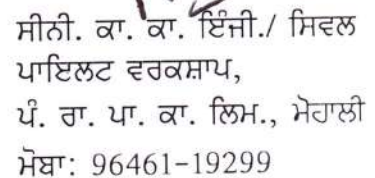 ਸੀਨੀ. ਕਾ. ਕਾ. ਇੰਜੀ./ ਸਿਵਲ
ਪਾਇਲਟ ਵਰਕਸ਼ਾਪ,
ਪੰ. ਰਾ. ਪਾ. ਕਾ. ਲਿਮ., ਮੋਹਾਲੀ
ਮੋਬਾ: 96461-19299